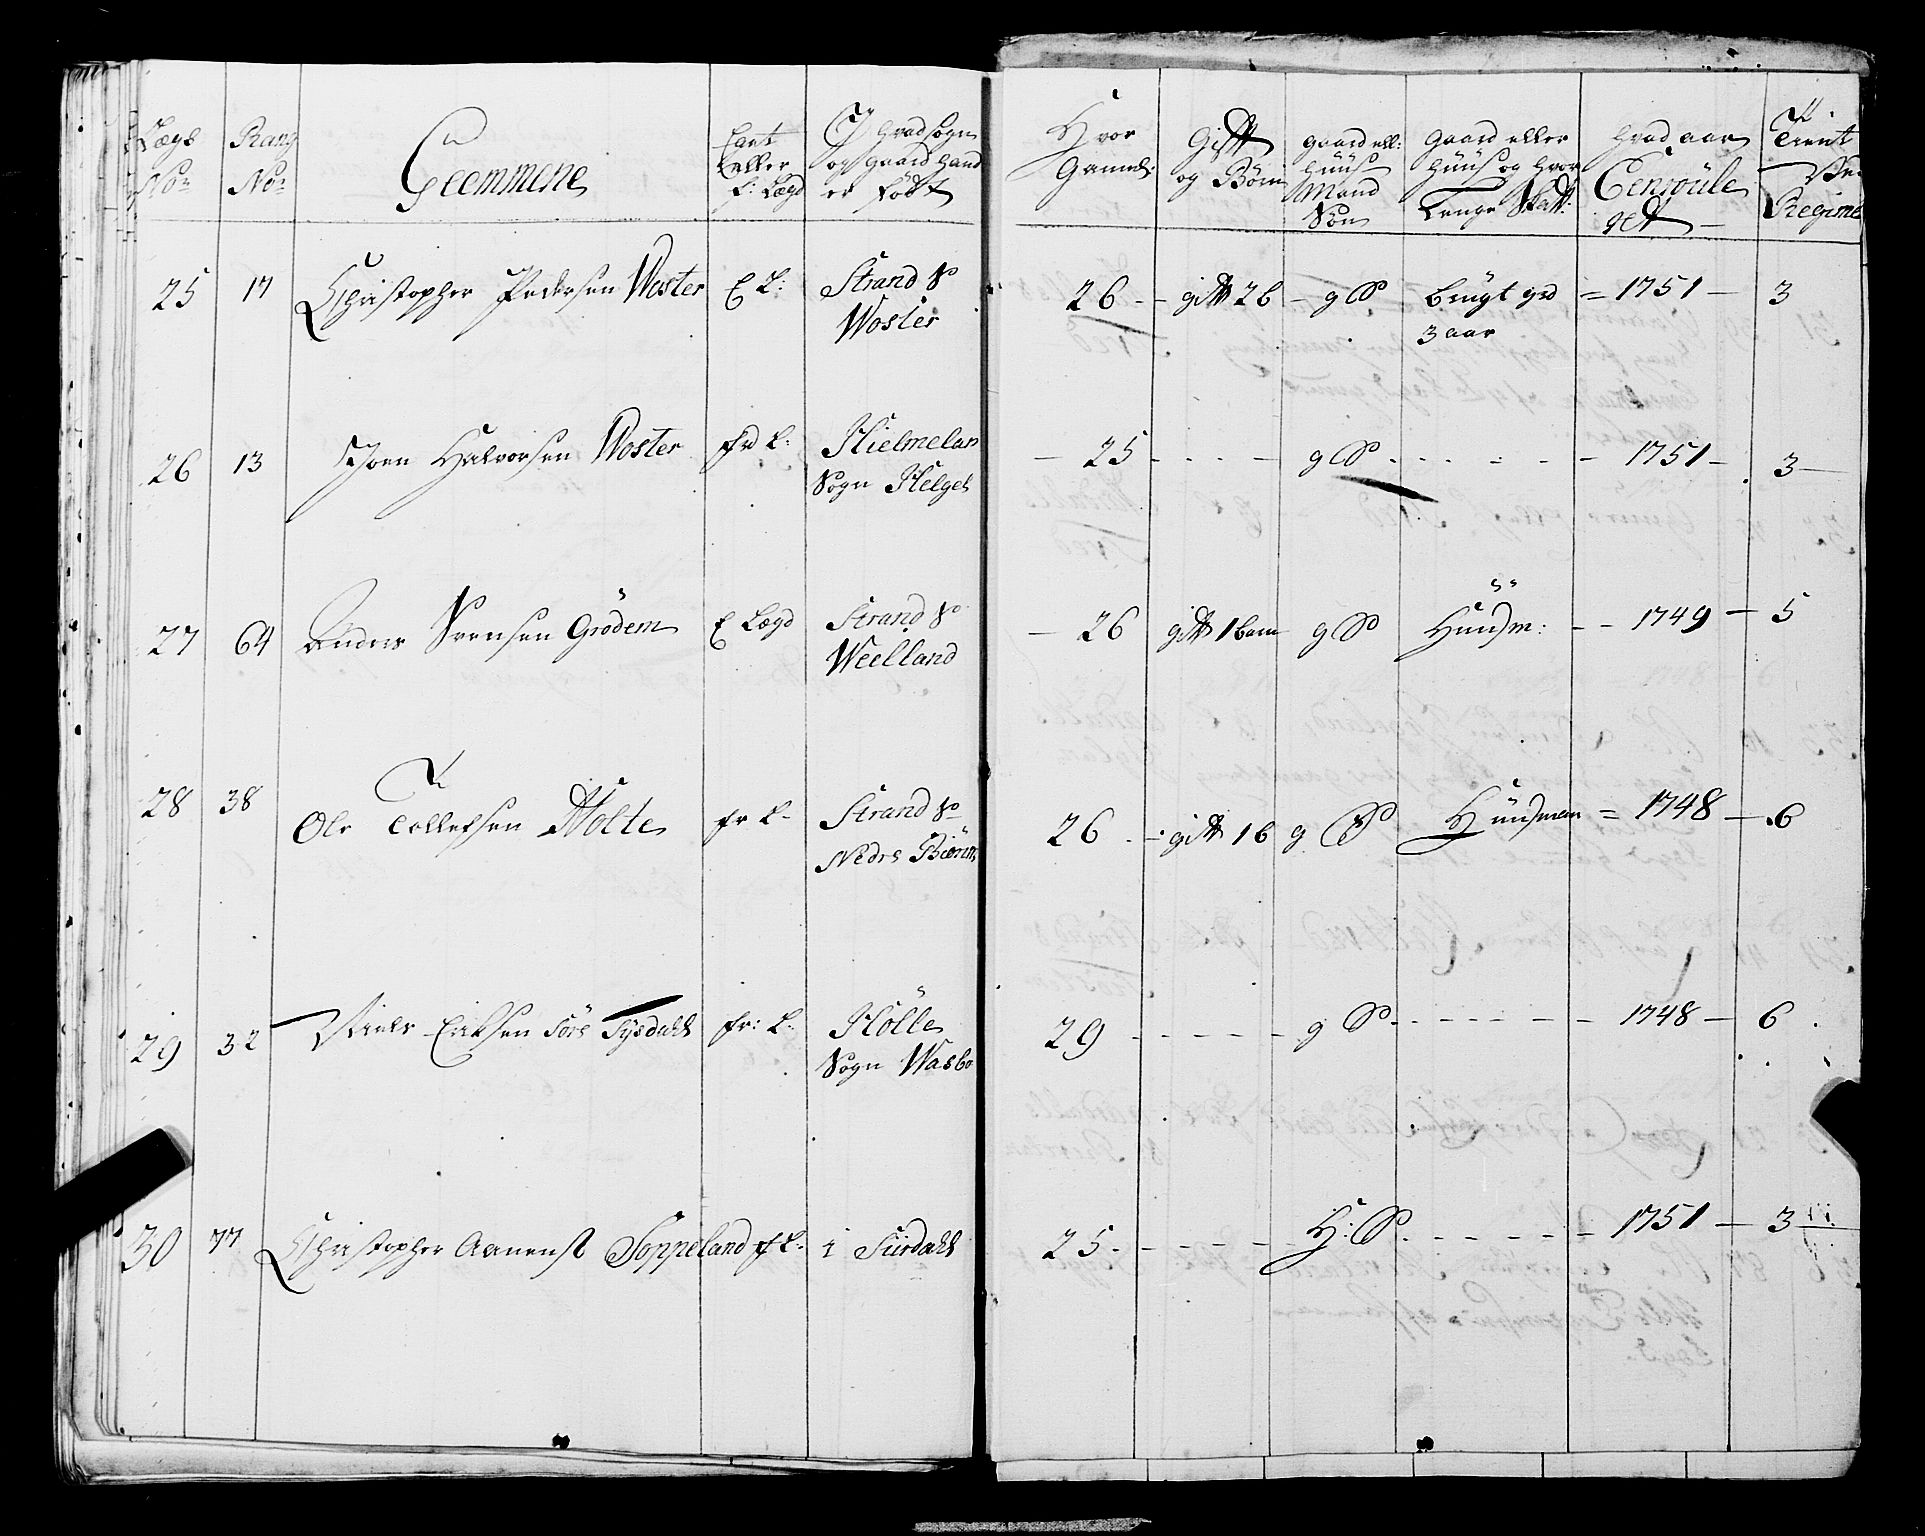 Lægs No: Rang No: Geemmene Egnt eller f: Lægd I hvad sogn og gaard hand er född
Hvor Gamel: Gift og Börn gaard ell: Huus Mand Sön Gaard eller Huus og hvor Lenge Hvad aar Tient Regim
25 17 Christopher Pedersen Woster E L: Strand S: Woster
26 - - gift 2 b - g S brugt grd 3 aar = 1751 - 3
26 13 Joen Halvorsen Woster fr L: Hielmelan Sogn Helges
- 25 - - - - g S - - - - - 1751 - 3
27 64 Anders Svensen Grödem E Lægd Strand S: Weelland
- 26 gift 1 barn g S Huusm: - - 1749 - 5
28 38 Ole Tollefsen Holte fr L- Strand S: Nedre
26 - gift 1 b g S Huusman = 1748 - 6
29 32 Niels Eriksen Söre Tysdahl fr: L: Hölle Sogn Wasbo
29 - - - - - g S - - - - - - 1748 - 6
30 77 Christopher Aanenst Soppeland f L: i Siirdahl
25 - - - - - H: S - - - - - - 1751 - 3